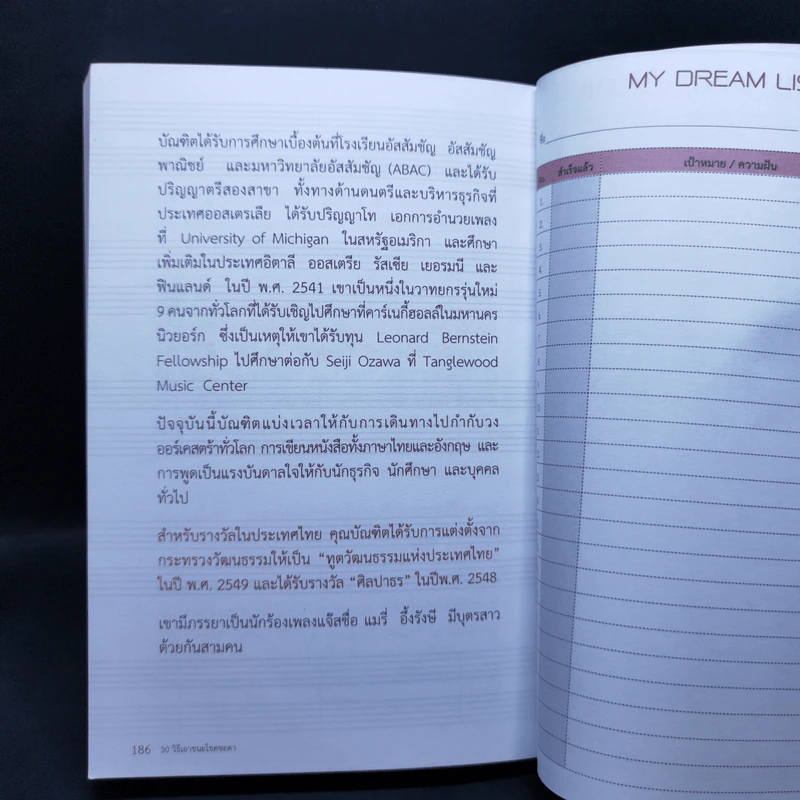 บัณฑิตได้รับการศึกษาเบื้องต้นที่โรงเรียนอัสสัมชัญ อัสสัมชัญ
พาณิชย์ และมหาวิทยาลัยอัสสัมชัญ (ABAC) และได้รับ
ปริญญาตรีสองสาขา ทั้งทางด้านดนตรีและบริหารธุรกิจที่
ประเทศออสเตรเลีย ได้รับปริญญาโท เอกการอำนวยเพลง
ที่ University of Michigan ในสหรัฐอเมริกา และศึกษา
เพิ่มเติมในประเทศอิตาลี ออสเตรีย รัสเซีย เยอรมนี และ
ฟินแลนด์ ในปี พ.ศ. 2541 เขาเป็นหนึ่งในวาทยกรรุ่นใหม่
9 คนจากทั่วโลกที่ได้รับเชิญไปศึกษาที่คาร์เนกี้ฮอลล์ในมหานคร
นิวยอร์ก ซึ่งเป็นเหตุให้เขาได้รับทุน Leonard Bernstein
Fellowship ไปศึกษาต่อกับ Seiji Ozawa ที่ Tanglewood
Music Center
ปัจจุบันนี้บัณฑิตแบ่งเวลาให้กับการเดินทางไปกำกับวง
ออร์เคสตร้าทั่วโลก การเขียนหนังสือทั้งภาษาไทยและอังกฤษ และ
การพูดเป็นแรงบันดาลใจให้กับนักธุรกิจ นักศึกษา และบุคคล
ทั่วไป
สำหรับรางวัลในประเทศไทย คุณบัณฑิตได้รับการแต่งตั้งจาก
กระทรวงวัฒนธรรมให้เป็น “ทูตวัฒนธรรมแห่งประเทศไทย”
ในปี พ.ศ. 2549 และได้รับรางวัล “ศิลปาธร” ในปีพ.ศ. 2548
เขามีภรรยาเป็นนักร้องเพลงแจ๊สชื่อ แมรี่ อึ้งรังษี มีบุตรสาว
ด้วยกันสามคน
186 50 วิธีเอาชนะโชคชะตา
MY DREAM LIS
ชื่อ
No. สำเร็จแล้ว เป้าหมาย / ความฝัน
1.
2.
3.
4.
5.
6.
7.
8.
9.